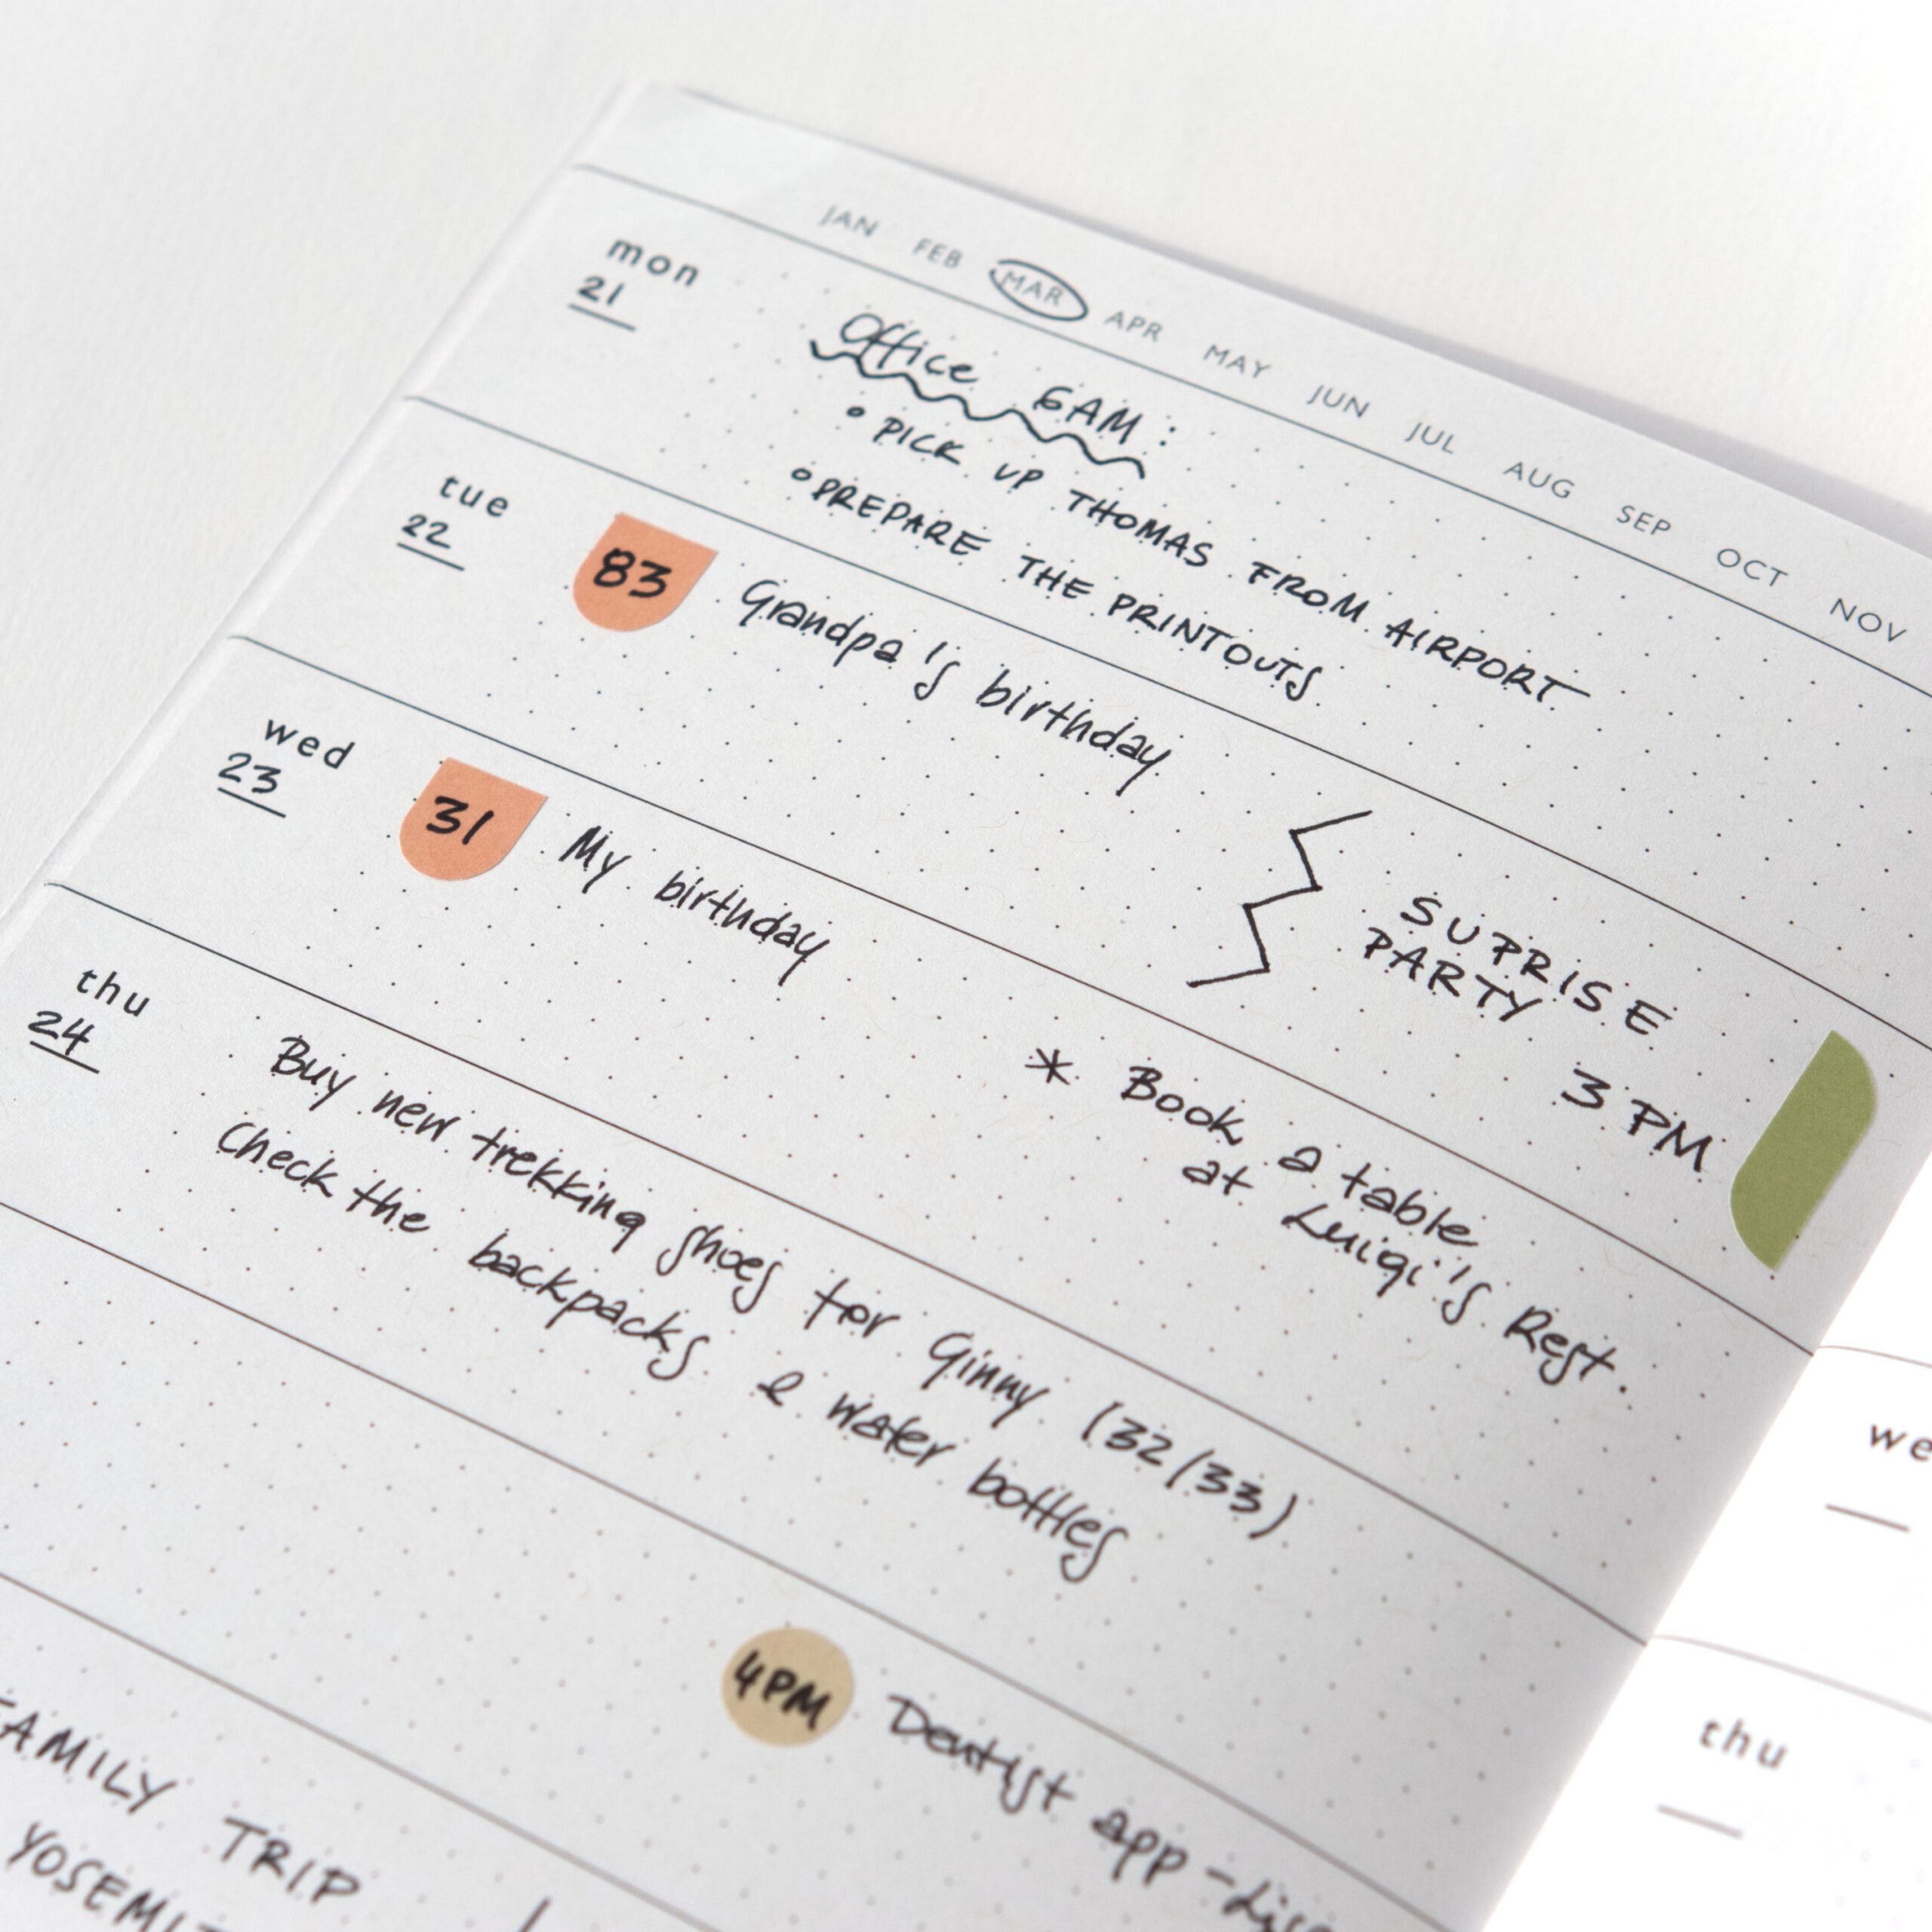 JAN FEB MAR APR MAY JUN JUL AUG SEP OCT NOV
mon
21
Office 6AM:
• PICK UP THOMAS FROM AIRPORT
• PREPARE THE PRINTOUTS
tue
22
83
Grandpa's birthday
SUPRISE
PARTY
3 PM
wed
23
31
My birthday
* Book a table
at Luigi's Rest.
thu
24
Buy new trekking shoes for Ginny (32/33)
Check the backpacks & water bottles
4PM
Dentist app -
FAMILY TRIP
we
thu